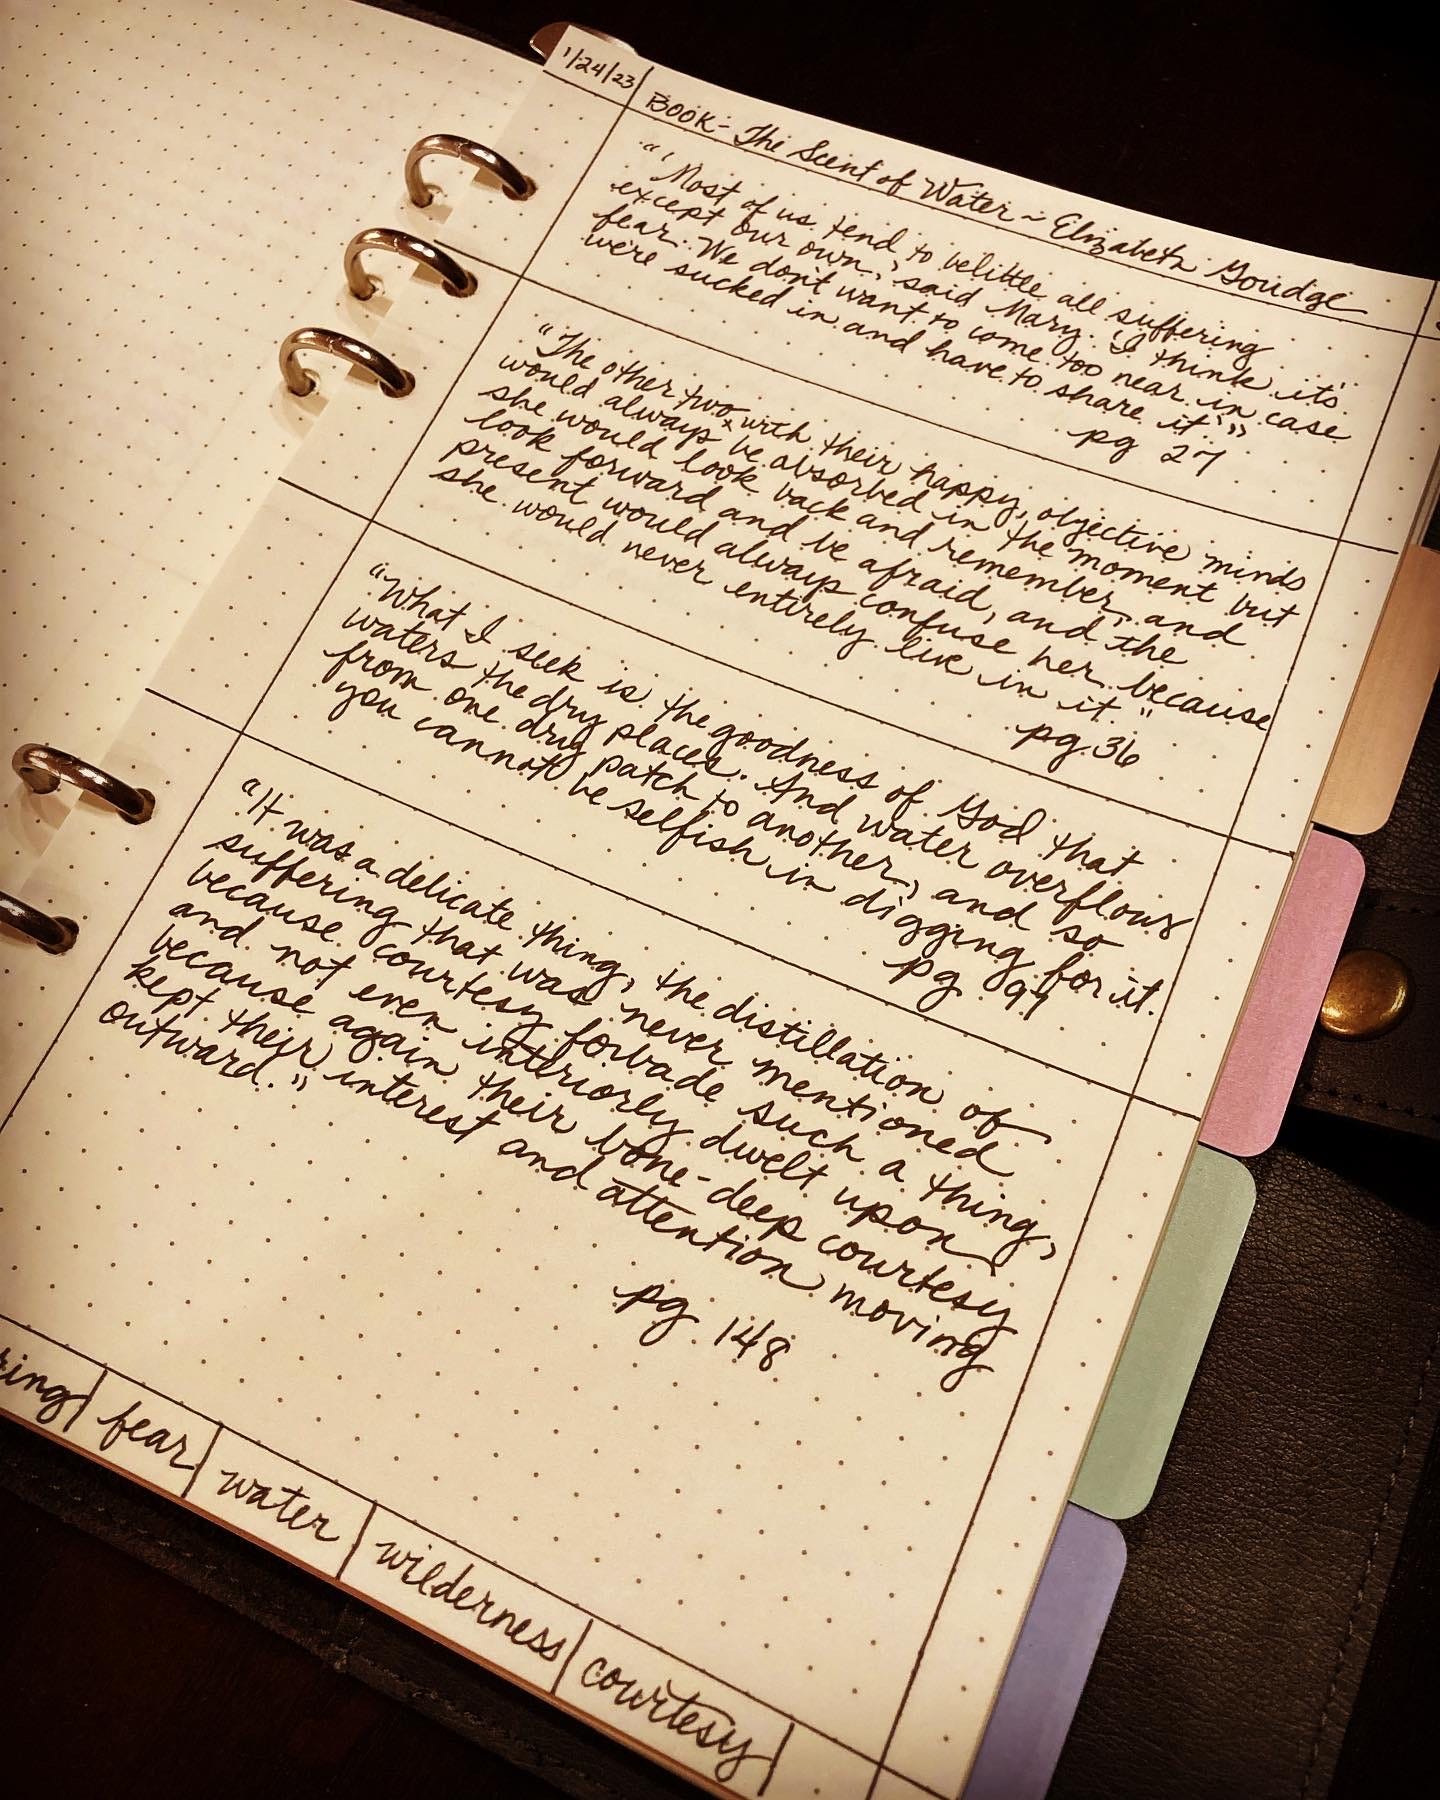 1/24/23
BOOK - The Scent of Water ~ Elizabeth Goudge
"'Most of us tend to belittle all suffering
except our own,' said Mary. 'I think it's
fear. We don't want to come too near in case
were sucked in and have to share it'"
pg 27
"The other two, with their happy, objective minds
would always be absorbed in the moment but
she would look back and remember, and
look forward and be afraid, and the
present would always confuse her because
she would never entirely live in it."
pg. 36
"What I seek is the goodness of God that
waters the dry places. And water overflows
from one dry patch to another, and so
you cannot be selfish in digging for it.
pg. 97
"It was a delicate thing, the distillation of
suffering that was never mentioned
because courtesy forbade such a thing,
and not even interiorly dwelt upon
because again their bone-deep courtesy
kept their interest and attention moving
outward."
pg. 148
ring | fear | water | wilderness | courtesy |